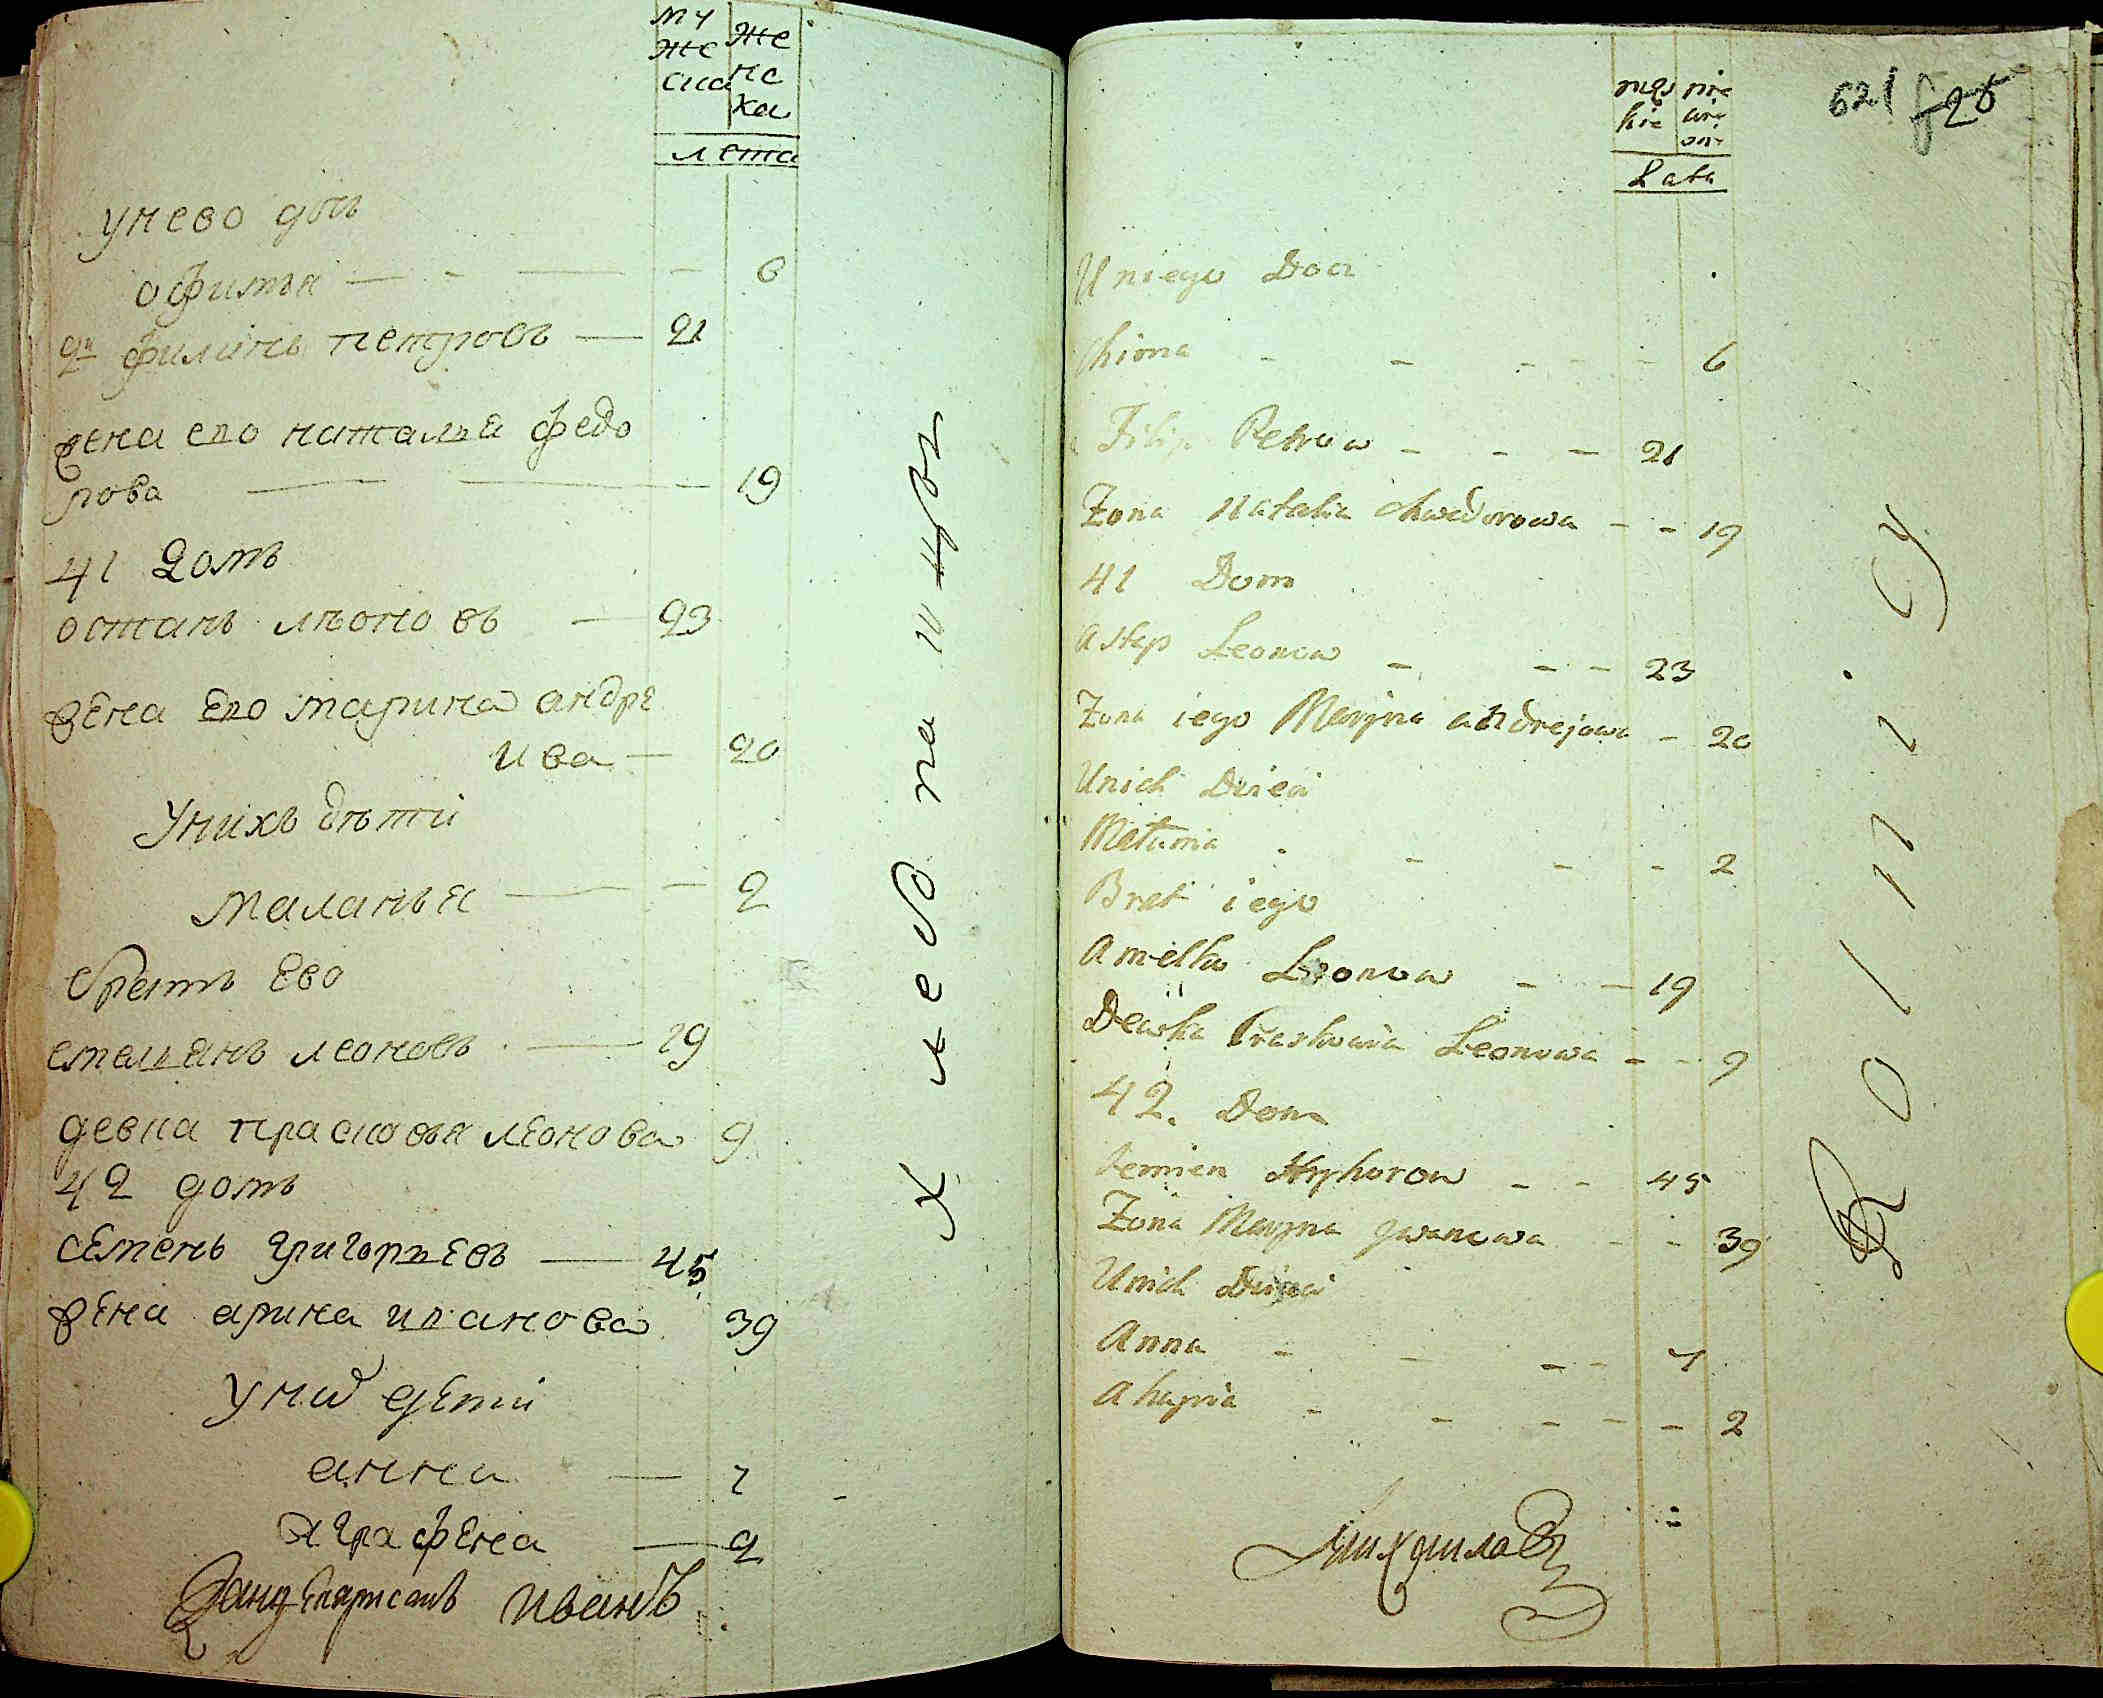 му же ска
же нс ка
лета
унево дочь
офимья 6
филипъ петровъ 21
жена ево наталья федо
рова 19
41 домъ
остапъ лѣоновъ 23
жена ево марина андре
ива 20
унихъ дѣти
маланья 2
братъ ево
емельянъ леоновъ 19
девка прасковья леонова 9
42 домъ
семенъ григорьевъ 45
жена арина иванова 39
уних дети
анна 7
аграфена 2
иванъ
хлебопашцовъ
męs kie
Lata
621
28
Uniego Doci
Chima 6
Filip Petrow 21
Zona Natalia Chwedorowa 19
41 Dom
Astap Leonow 23
Zona iego Maryna andrejowa 20
Unich Dzieci
Mełania 2
Brat iego
Amelko Leonow 19
Dewka Praskowia Leonowa 9
42. Dom
Semien Hryhorow 45
Zona Maryna Jwanowa 39
Unich Dzieci
Anna 7
Ahapia 2
Михаила
Rolnicy